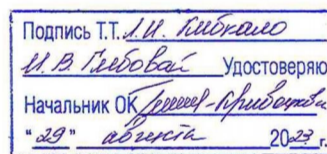 Подпись Т.Т. Л.И. Глебкало
И.В. Глебовой Удостоверяю
Начальник ОК
"29" августа 2023 г.